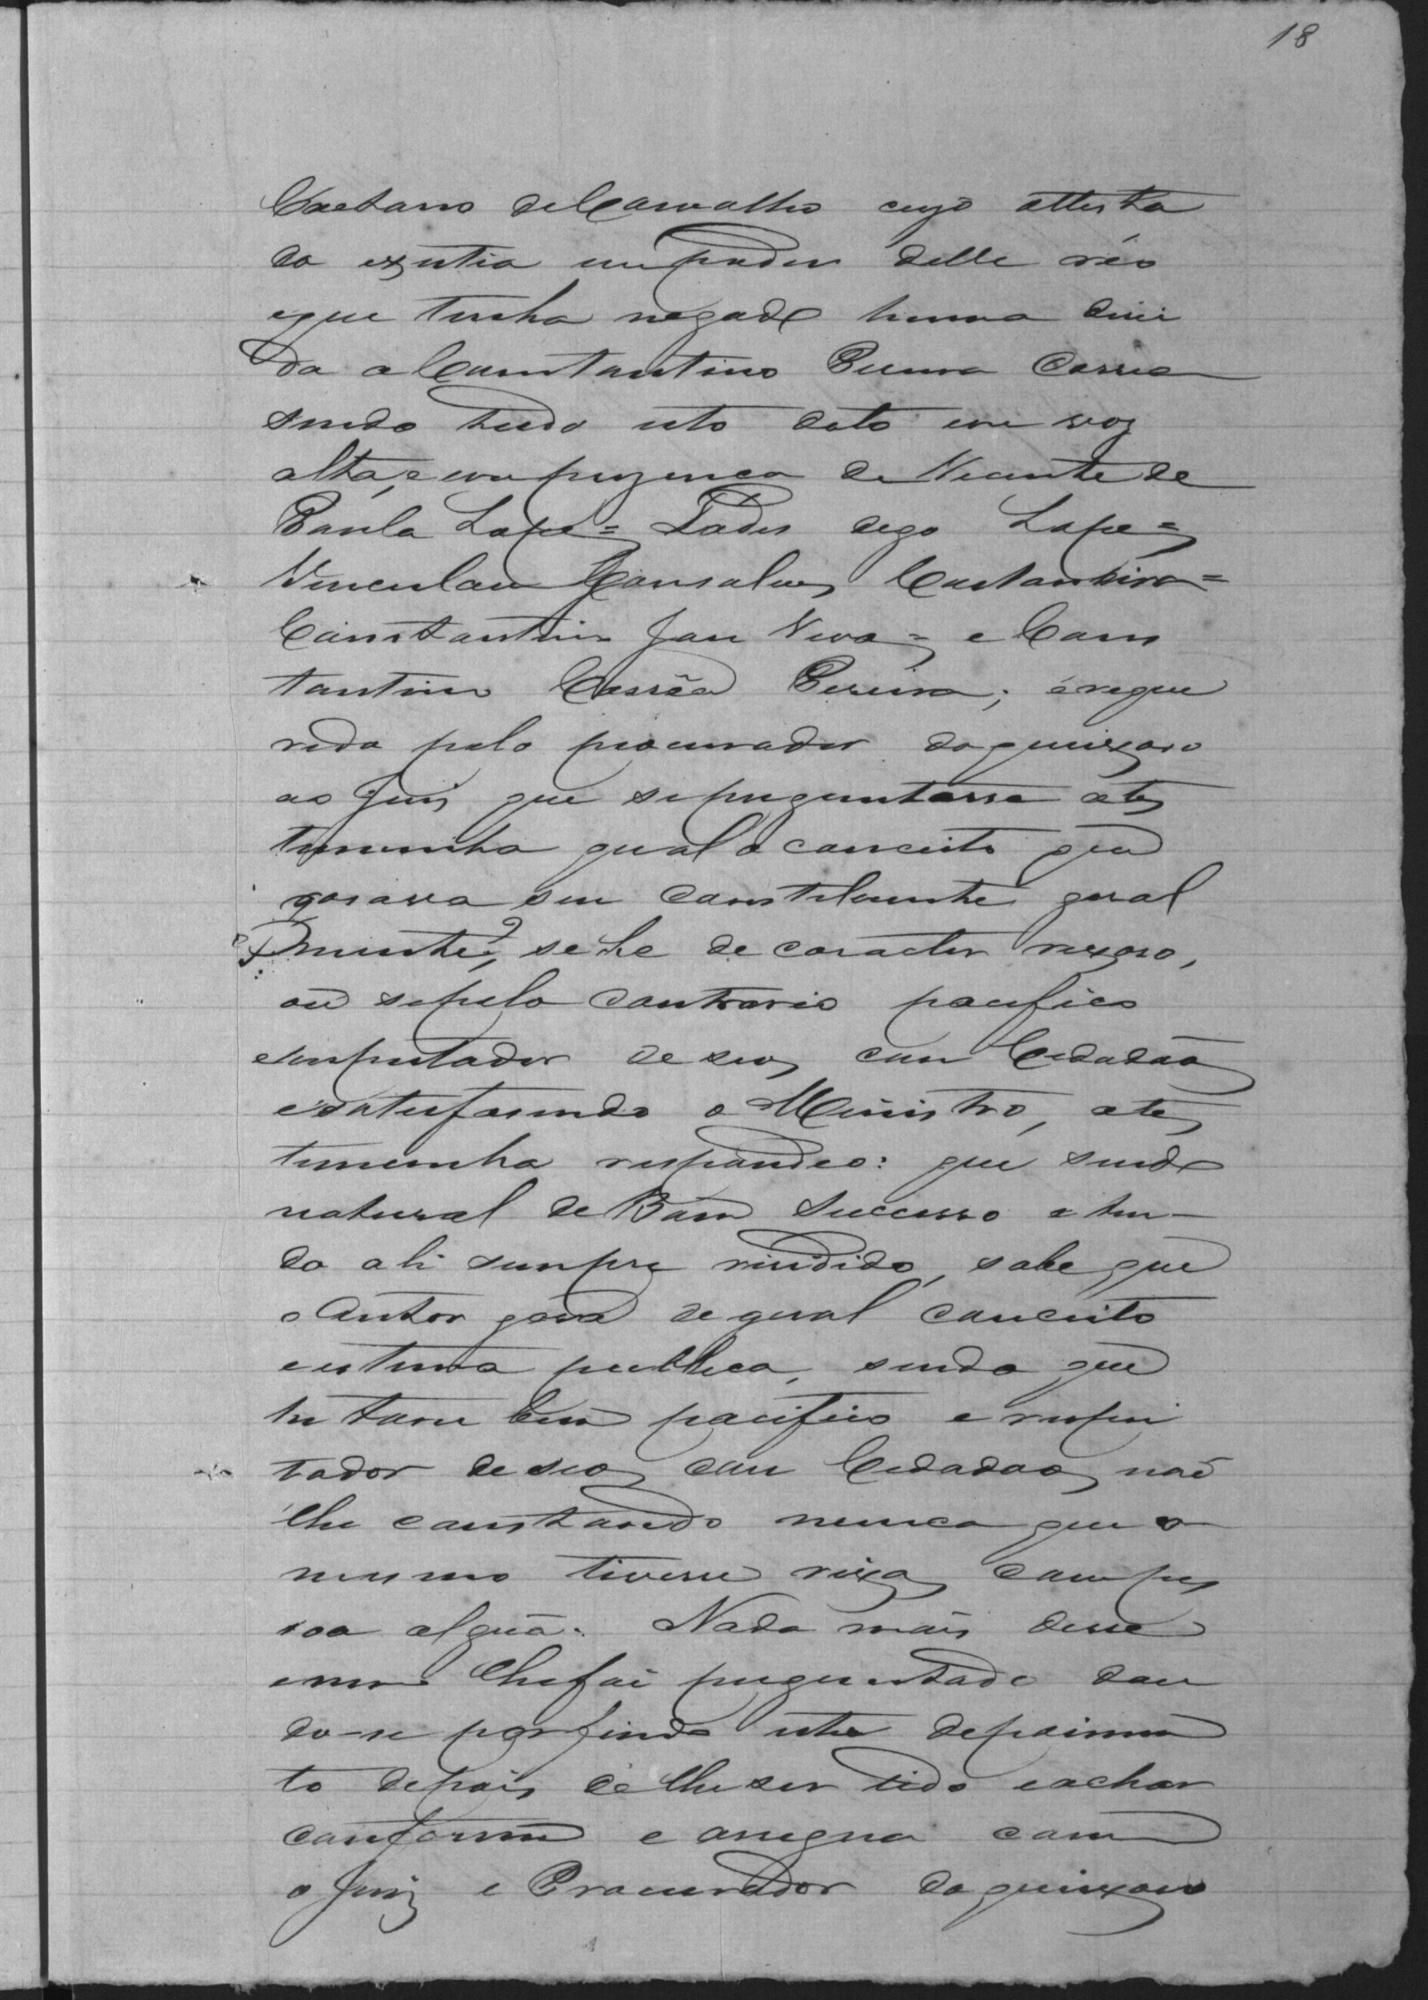 18
Caetano de Carvalho cujo attesta
do existia em poder delle réo
e que tinha negado huma divi
da a Constantino Correa
sendo tudo isto dito em voz
alta, e em prezença de Vicente de
Paula Lopes = Lopes =
Venceslau Gonsalves Castanheira =
Constantino José Neves = e Cons
tantino Corrêa Pereira; e reque
rido pelo procurador do queixoso
ao Juis que se preguntasse a tes
timunha qual o conceito que
gosava seu constetuinte geral
mente?, se he de caracter rixoso,
ou se pelo contrario pacifico
e respeitador de seos con Cidadãos
e satisfasendo o Ministro, a tes
timunha respondeo: que sendo
natural de Bom Successo e ten-
do ali sempre residido, sabe que
o Autor gosa de geral conceito
e estima publica, sendo que
he tambem pacifico e respei
tador de seos con Cidadaos, não
lhe constando nunca que o
mesmo tivesse rixas com pes
soa algũa. Nada mais disse
e nem lhe foi preguntado dan
do-se por findo este depoimen
to depois de lhe ser lido e achar
conforme e assigna com
o Juiz e Procurador do queixoso